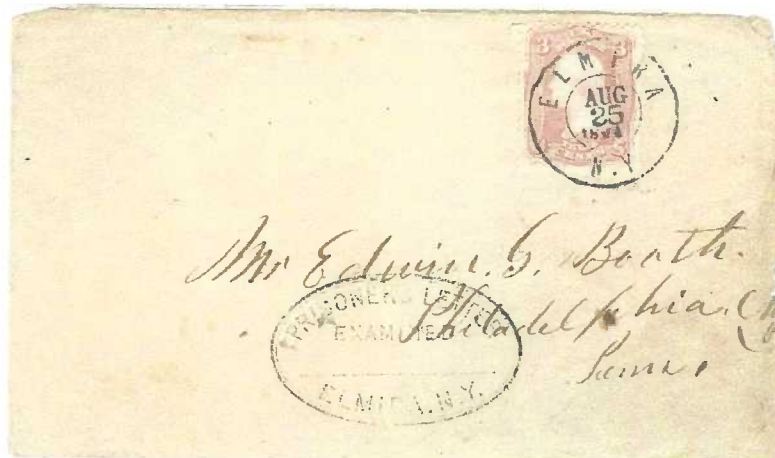 3 3
ELMIRA
AUG
25
N.Y
Mr Edwin. G. Booth.
Philadelphia
Penna
PRISONERS LETTER
EXAMINED
ELMIRA. N.Y.